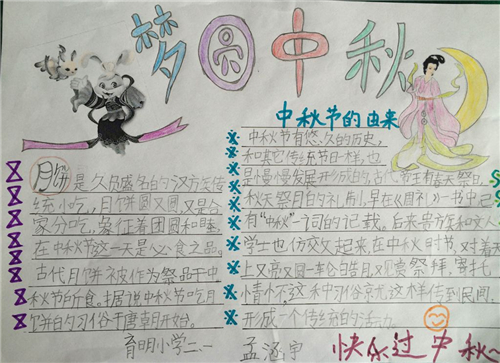 梦圆中秋
月饼是久负盛名的汉方式传
统小吃,月饼圆又圆又是合
家分吃,象征着团圆和睦
在中秋节这一天是必食之品。
古代月饼被作为祭品于中
秋节所食。据说中秋节吃月
饼的习俗于唐朝开始。
育明小学二.一
中秋节的由来
中秋节有悠久的历史,
和其它传统节日一样,也
是慢慢发展形成的,古代帝王有春天祭日
秋天祭月的礼制,早在《周礼》一书中已
有“中秋”一词的记载。后来贵族和文人
学士也仿效起来,在中秋时节,对着天
上又亮又圆一轮皓月,观赏祭拜,寄托
情怀,这种习俗就这样传到民间,
形成一个传统的活动
孟涵宇
快乐过中秋~